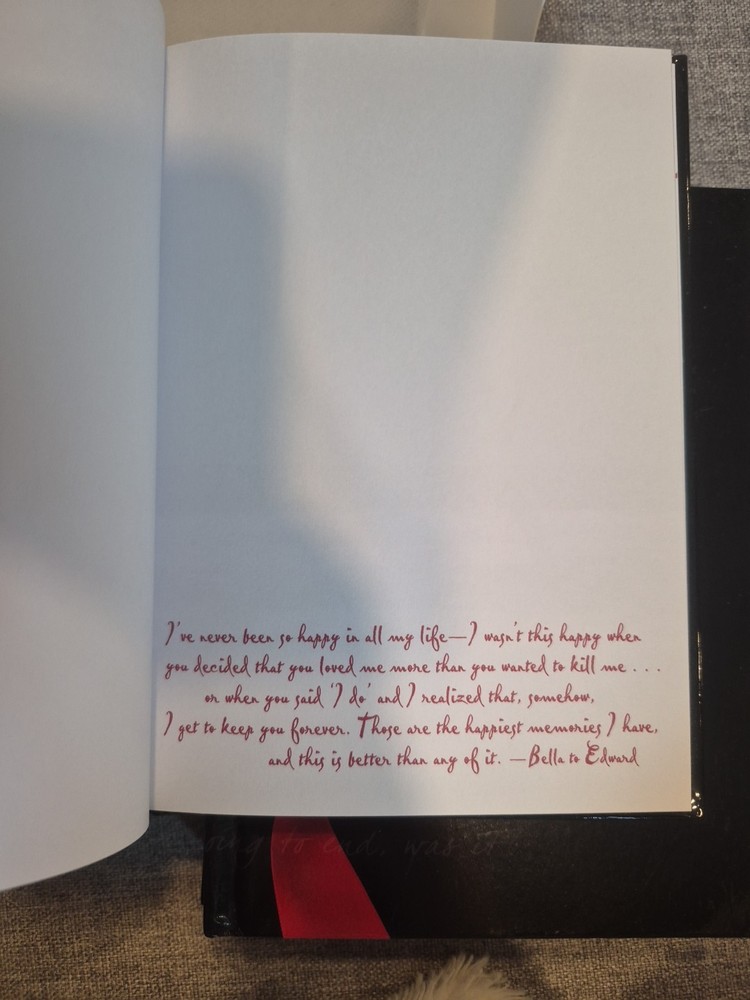 I've never been so happy in all my life—I wasn't this happy when
you decided that you loved me more than you wanted to kill me . . .
or when you said 'I do' and I realized that, somehow,
I get to keep you forever. Those are the happiest memories I have,
and this is better than any of it. —Bella to Edward
to end, was it